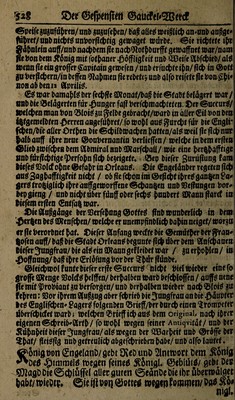 528 Der Gespensten Gauckel-Werck
Speise zuzuführen / und zuzusehen / daß alles weißlich an- und außge-
führet / und nichts unvorsichtig gewaget würde. Sie richtete ihr
Fähnlein auff / und nachdem sie nach Nothdurfft gewaffnet war / nam
sie von dem König mit höchster Höfligkeit und Weiß Abschied / als
wenn sie ein grosser Capitain gewesen / und erfreuete ihn / sich in Gott
zu versichern / in dessen Nahmen sie redete; und also reisete sie von Chi-
non ab den 21 Aprilis.
Es war damahls der sechste Monat / daß die Stadt belägert war /
und die Belägerten für Hunger fast verschmachteten. Der Succurs /
welchen man von Blois zu Felde gebracht / ward in aller Eil von den
belägern
allgemeinen Herrn angeführet / so wohl auß Furcht für die Engli-
schen / die aller Orthen die Schildwachen hatten / als weil sie sich nur
bald auff ihre neu Gouvernantin verliessen / welche in dem ersten
Glied zwischen dem Admiral und Marschall / wie eine hertzhafftige
und fürsichtige Person sich bezeigete. Bey dieser Zurüstung kam
dieses Volck ohne Gefahr in Orleans. Die Engeländer regeten sich
auß Zaghafftigkeit nicht / ob sie schon im Gesicht ihrer gantzen Lä-
gers trotziglich ihre auffgeworffene Schantzen und Vestungen vor-
bey gieng / und nicht über fünff oder sechs hundert Mann starck in
diesem ersten Entsatz war.
Die Außgänge der Versehung Gottes sind wunderlich in dem
Hertzen der Menschen / welche er unempfindlich dahin neiget / worzu
er sie verordnet hat. Dieser Anfang weckte die Gemüther der Fran-
tzosen auff / daß die Stadt Orleans begunte sich über dem Anschauen
dieser Jungfrau / die als ein Mann gekleidet war / zu erhohlen / in
Hoffnung / daß ihre Erlösung vor der Thür stünde.
Gleichwol kunte dieser erste Succurs nicht viel wieder eine so
grosse Menge Volcks helffen / derhalben ward beschlossen / auffs neue
sie mit Proviant zu versorgen / und derhalben wieder nach Blois zu
kehren: Vor ihrem Außzug aber schrieb die Jungfrau an die Häupter
des Englischen-Lägers folgenden Brieff / der durch einen Trompeter
überschicket ward: welchen Brieff ich aus dem Original, nach ihrer
eigenen Schreib-Arth / so wohl wegen seiner Antiquität / und der
Kühnheit dieser Jungfrau / als wegen der Warheit und Grösse der
That / fleissig und getreulich abgeschrieben habe / und also lautet.
König von Engeland / gebt Red und Antwort dem König
des Himmels wegen seines Königl. Geblüts / gebt der
Magd die Schlüssel aller guten Städte die ihr überwältiget
habt / wieder. Sie ist von Gottes wegen kommen / das Kö-
nigl.